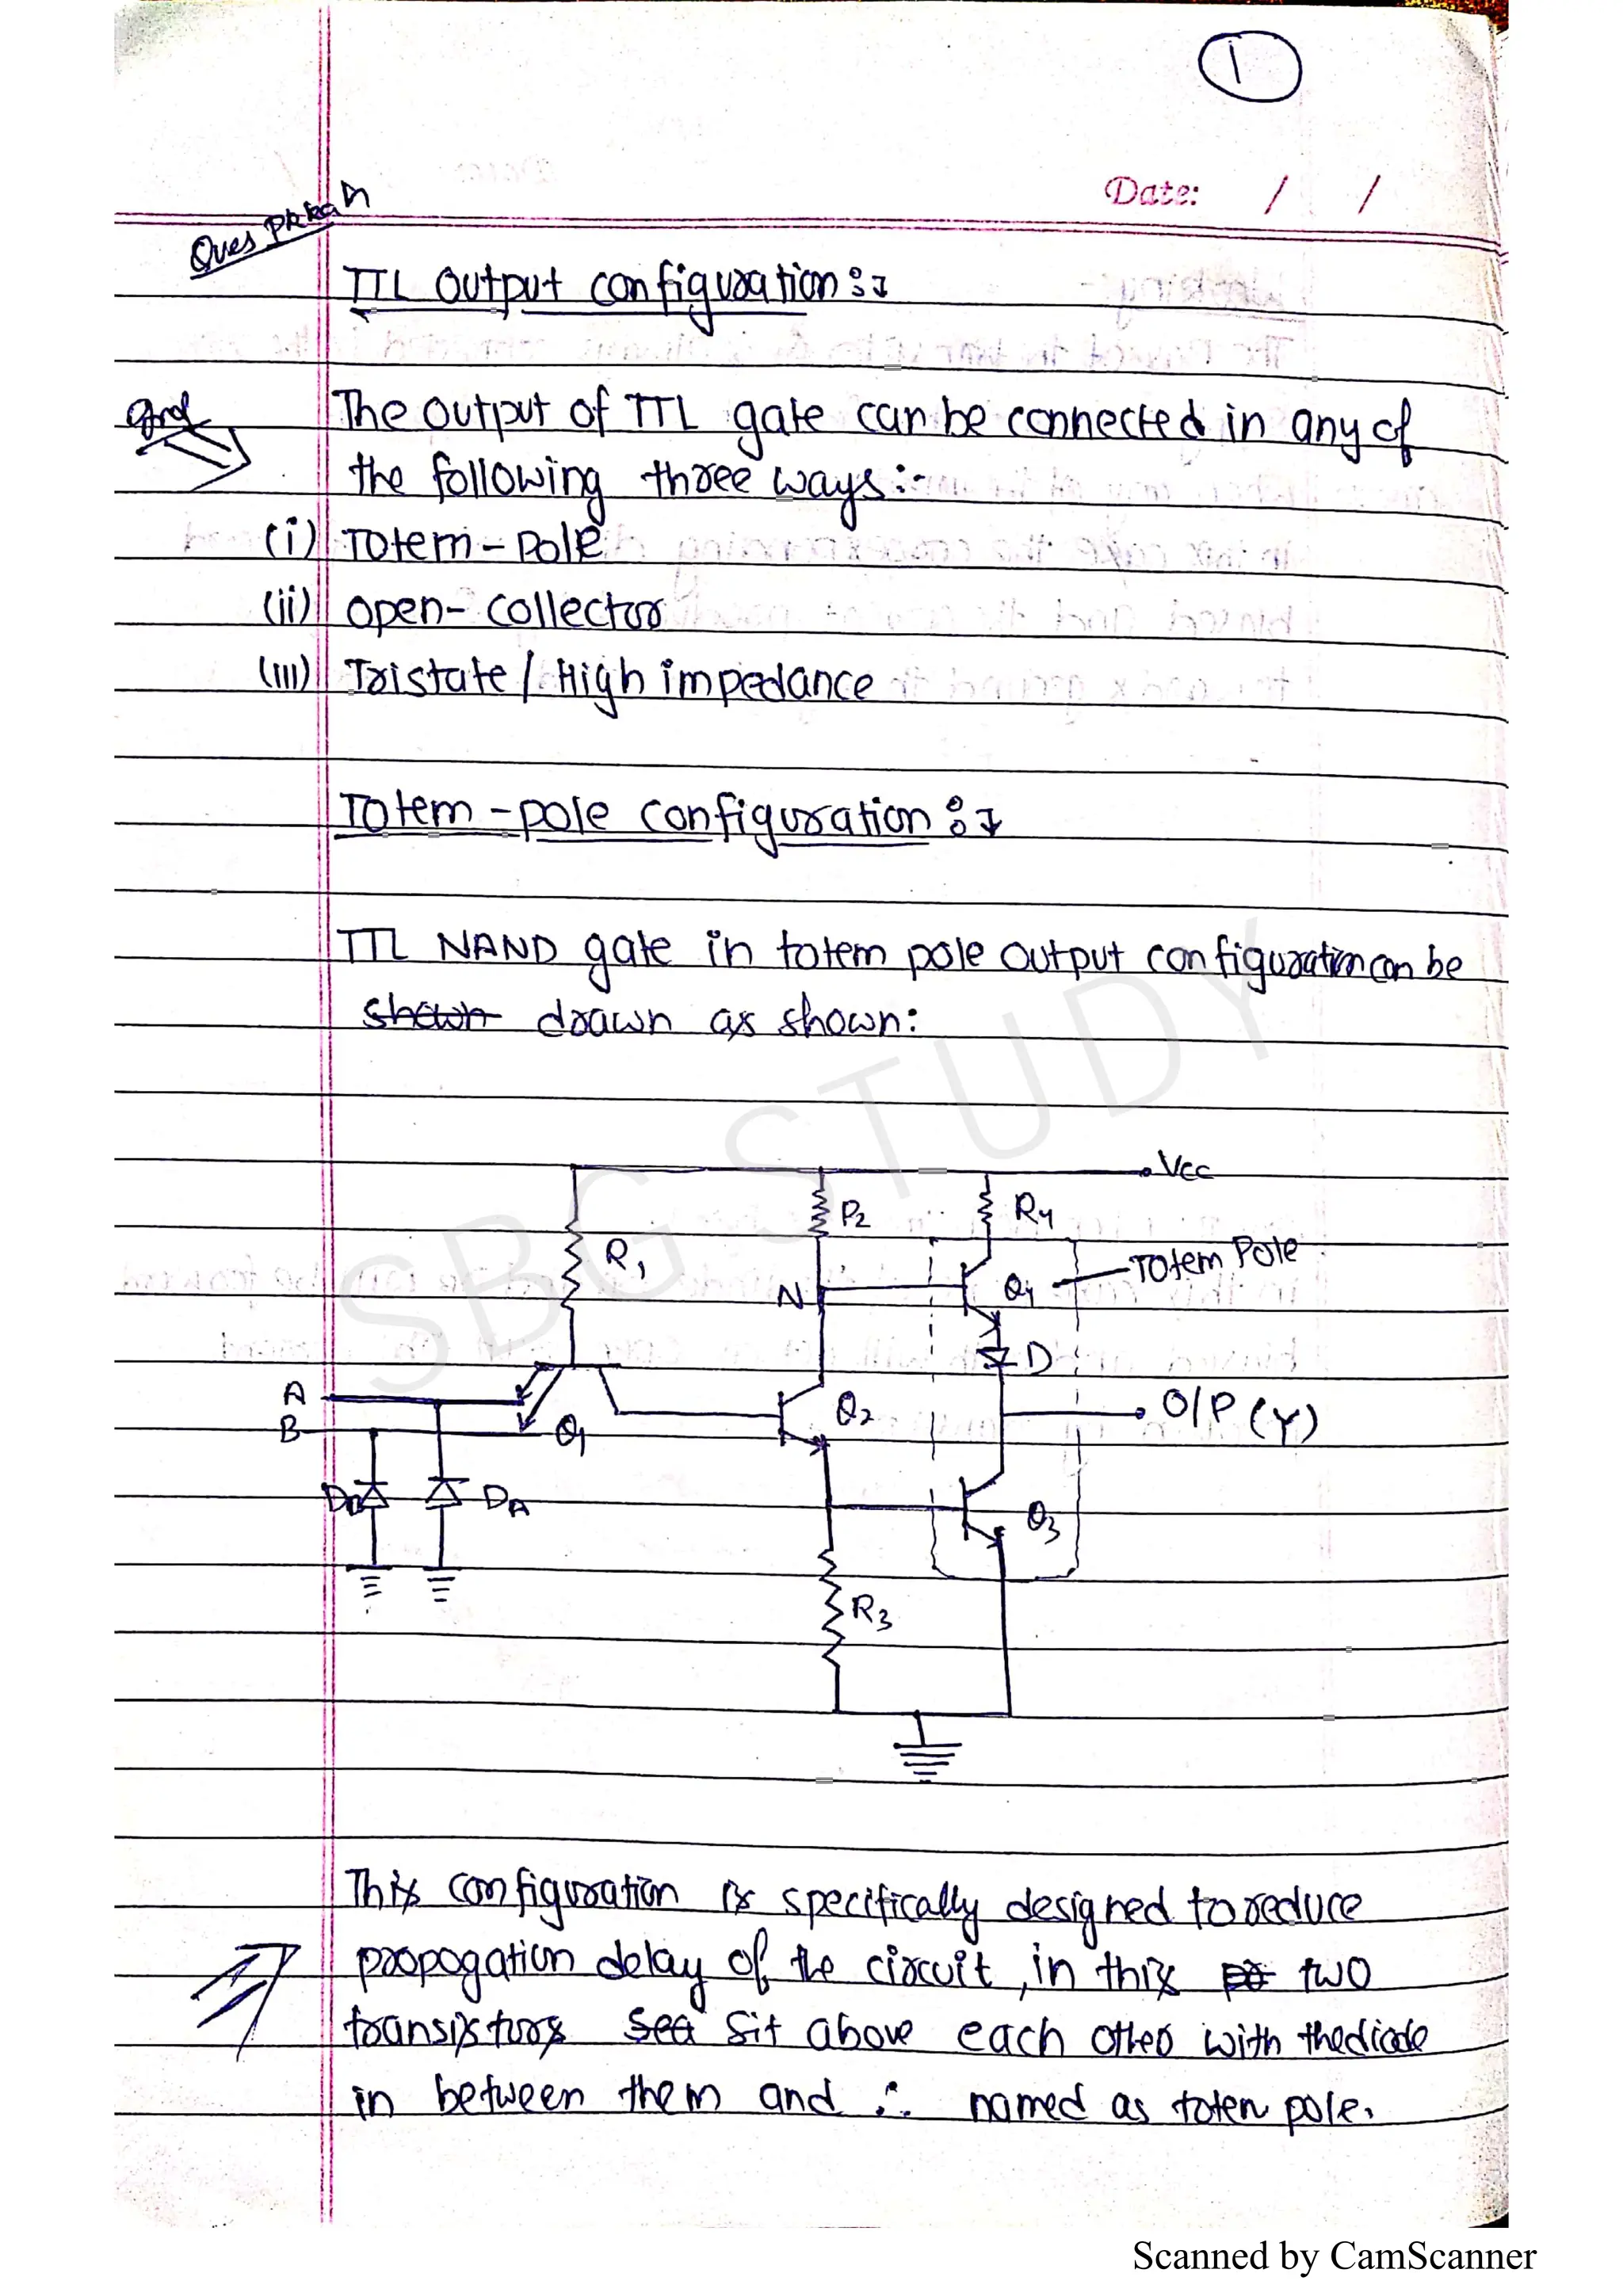 1
Date: / /
Ques
TTL Output configuration :-
The output of TTL gate can be connected in any of
the following three ways :-
(i) Totem - Pole
(ii) open - collector
(iii) Tristate / High impedance
Totem - pole configuration :-
TTL NAND gate in totem pole output configuration can be
shown drawn as shown:
Vcc
R2
R4
R1
Totem Pole
N
Q4
D
A
Q2
O/P (Y)
B
Q1
DB
DA
Q3
R3
This configuration is specifically designed to reduce
propogation delay of the circuit, in this two
transistors sit above each other with the diode
in between them and ∴ named as toten pole.
SBG STUDY
Scanned by CamScanner